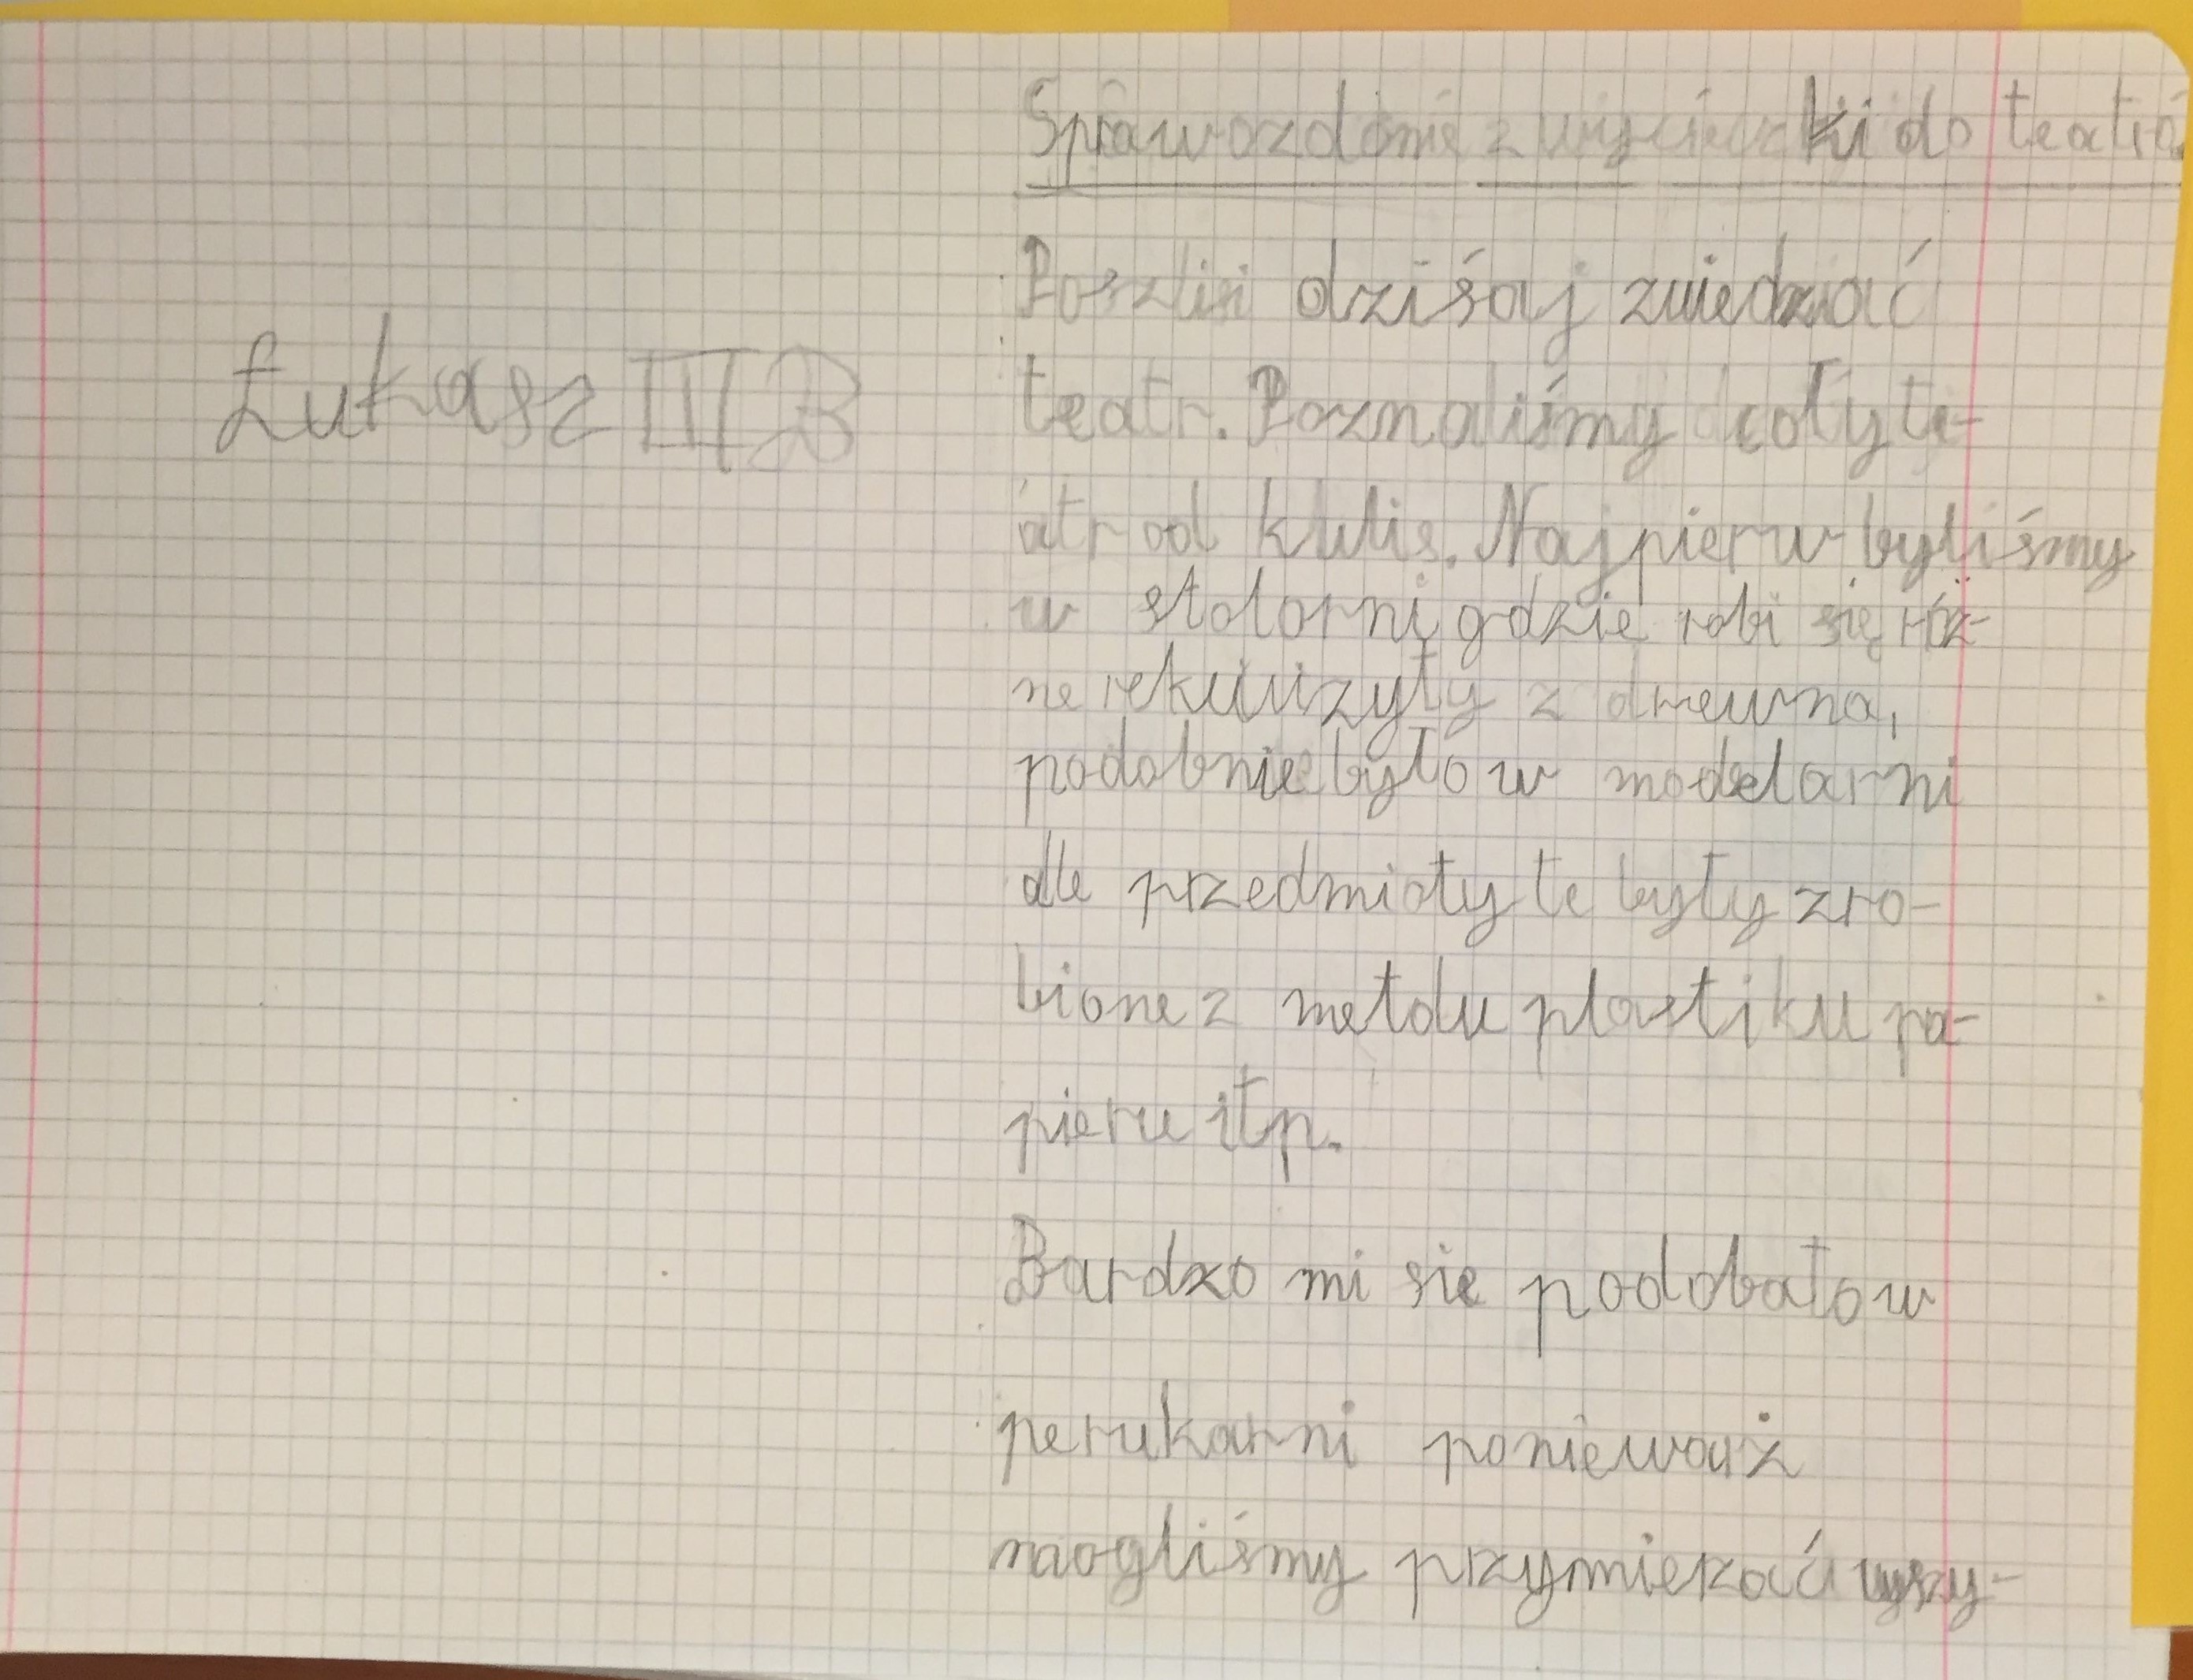 Sprawozdanie z wycieczki do teatru
Łukasz III B
Poszlisi dziśaj zwiedzać
teatr. Poznaliśmy cały te-
atr od kulis. Najpierw byliśmy
w stolarni gdzie robi się róż-
ne rekwizyty z drewna,
podobnie było w modelarni
ale przedmioty te były zro-
bione z metalu plastiku pa-
pieru itp.
Bardzo mi się podobało w
perukarni ponieważ
mogliśmy przymierzać